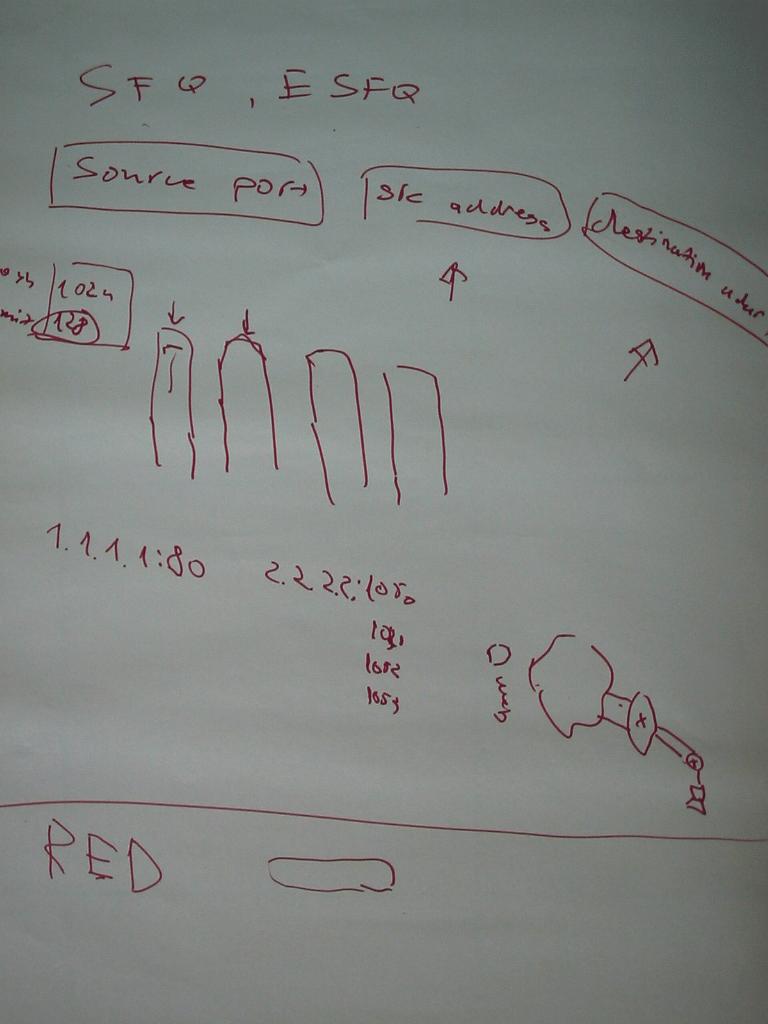 SFQ, ESFQ
Source port
src address
destination
1024
128
1.1.1.1:80
2.2.2.2:1050
1051
1052
1053
RED